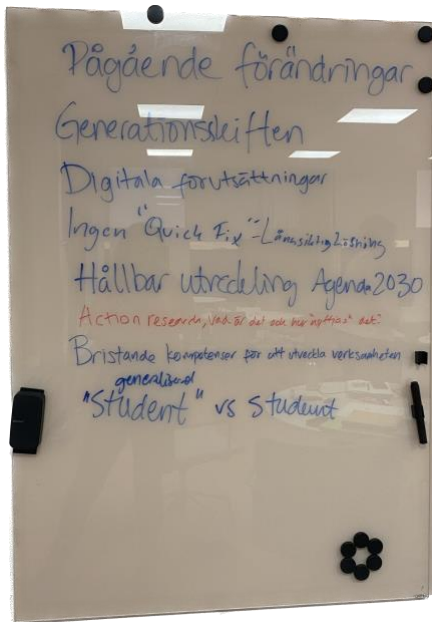 Pågående förändringar
Generationsskiften
Digitala förutsättningar
Ingen "Quick Fix" - Långsiktig Lösning
Hållbar utveckling Agenda 2030
Action research, vad är det och hur "nyttjas" det?
Bristande kompetenser för att utveckla verksamheten
generaliserad
"Student" vs Student